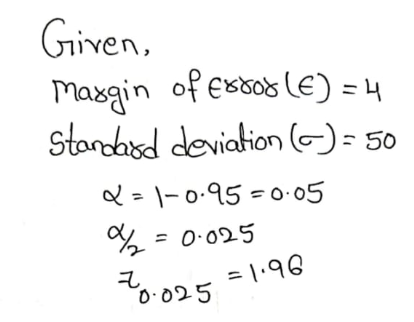 Given,
Margin of Error(ϵ) = 4
Standard deviation(σ) = 50
α = 1-0.95 = 0.05
α/2 = 0.025
z0.025 = 1.96